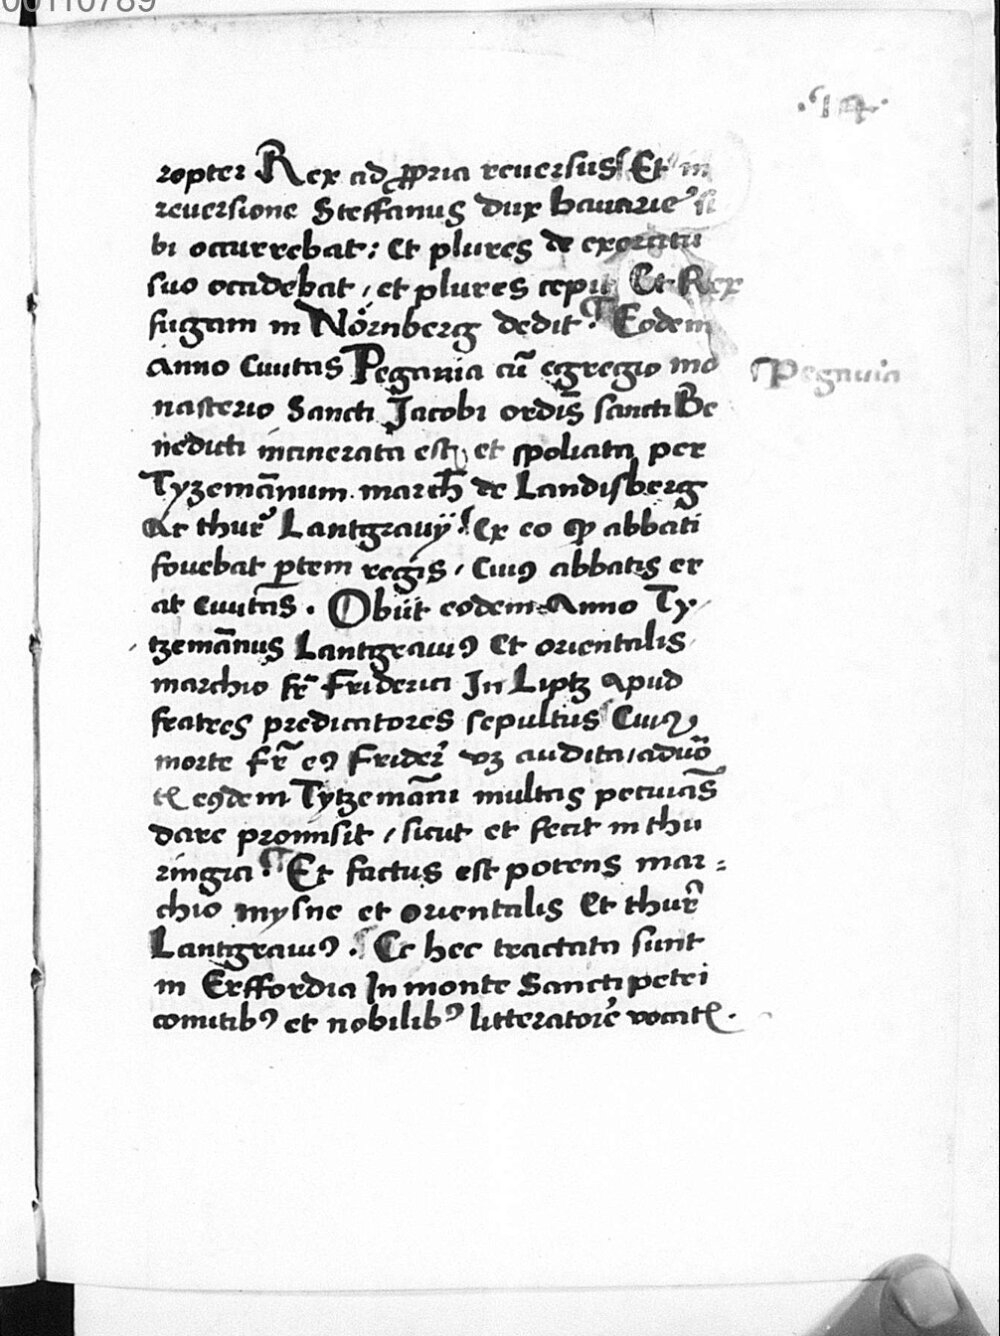 00110789
.14.
ropter Rex ad ꝓpria reuersus Et in
reuersione Steffanus dux bauarie si
bi occurrebat: Et plures de exercitu
suo occidebat, et plures cepit Et Rex
fugam in Nörnberg dedit. Eodem
Anno Ciuitas Pegauia cū egregio mo
Pegauia
nasterio Sancti Jacobi ordīs sancti Be
nedicti incinerata est, et spoliata per
Tyzemānum march̄ de Landisberg
Ac thur̄ Lantgrauÿ Ex eo ꝙ abbati
fouebat ꝑtem regis, Cuiꝰ abbatis er
at Ciuitas. Obiit eodem Anno Ty
tzemānus Lantgrauiꝰ Et orientalis
marchio fr̄ Friderici In Liptz apud
fratres predicatores sepultus Cuiꝰ
morte fr̄ eꝰ Frider̄ vꝫ audita, aduo
eꝰdem Tytzemāni multas pecuias̄
dare promisit, sicut et fecit in thu
ringia. Et factus est potens mar-
chio mysne et orientalis Et thur̄
Lantgrauiꝰ. Et hec tractata sunt
in Erffordia In monte Sancti petri
comitibꝰ et nobilibꝰ litteratorie vocatꝭ.